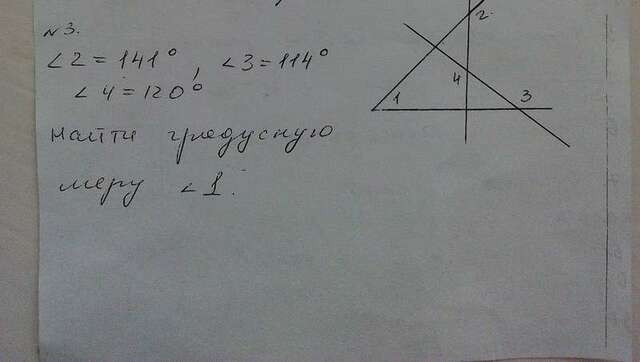 N 3.
∠2 = 141°, ∠3 = 114°
∠4 = 120°
найти градусную
меру ∠1.
2
4
1
3